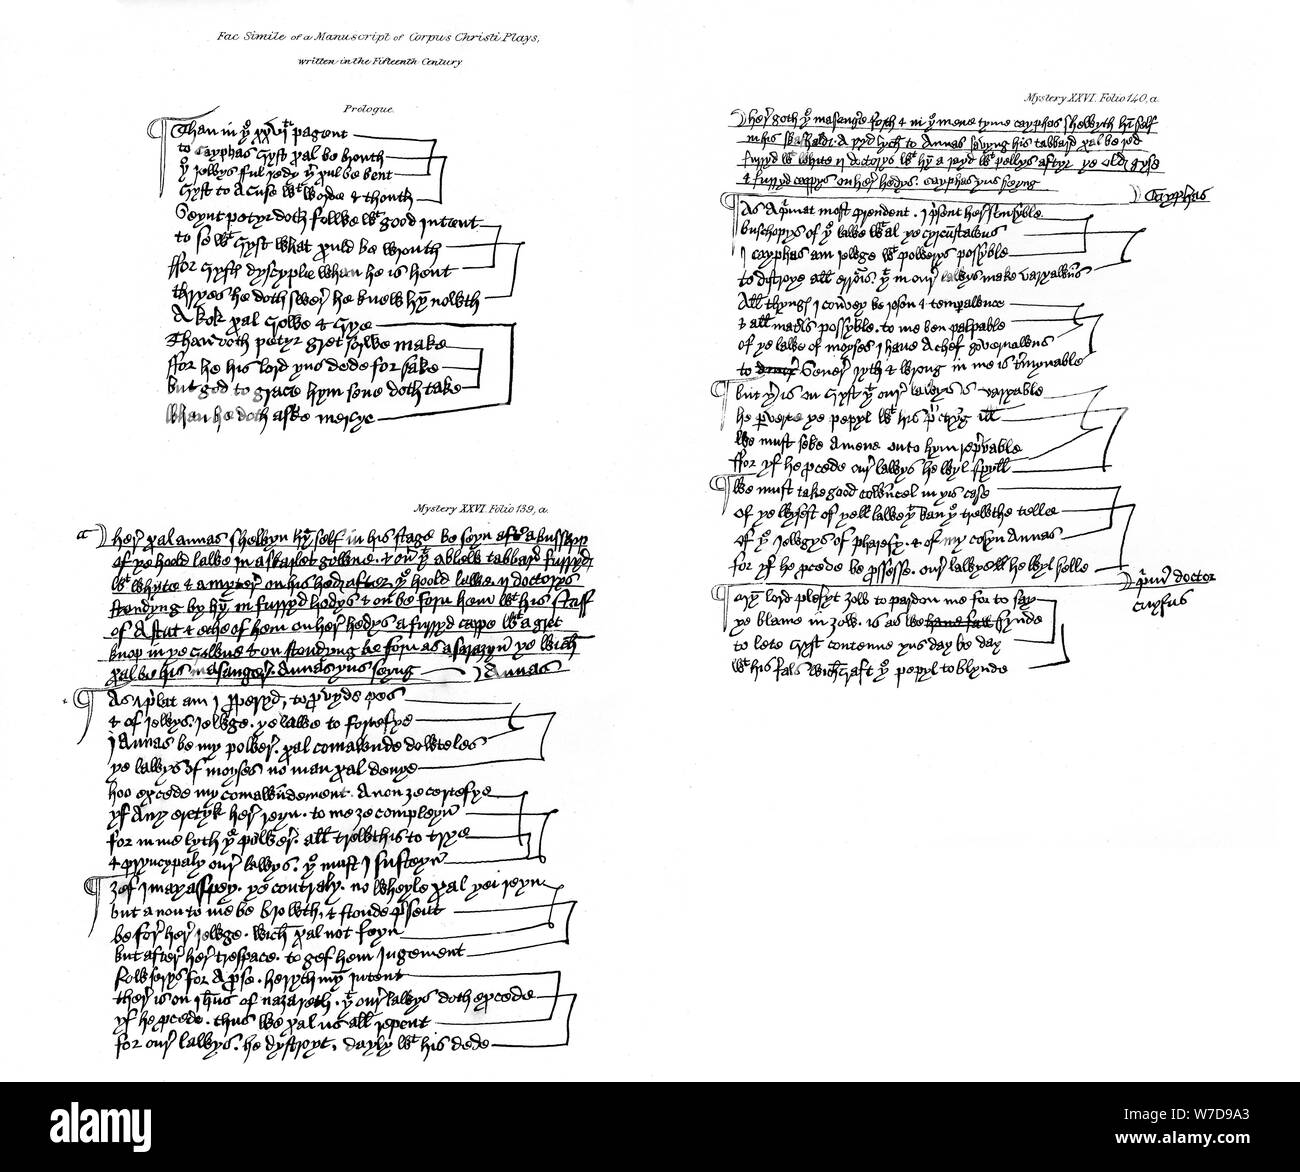 Fac Simile of a Manuscript of Corpus Christi Plays,
written in the Fifteenth Century
Prologue.
Than in yͤ xxviᵗⁱ pagent
to Cayphas Cryst xal be brouth
yͤ jewys ful redy yͬ xul be bent
Cryst to acuse wᵗ worde & thouth
Seynt petyr doth folwe wᵗ good intent
to se wᵗ cryst what xuld be wrouth
ffor crysts dyscyple whan he is hent
thryes he doth swerͤ he knew hym nowth
A kok xal crowe & crye
Than doth petyr gret sorwe make
ffor he his lord þus dede forsake
but god to grace hym sone doth take
whan he doth aske mercye
Mystery XXVI. Folio 139, a.
a
herͤ xal annas shewyn hym self in his stage be seyn aftyr a busshop
of þe hoold lawe in a skarlet gowne . & ouyr yᵗ a blew tabbard furryd
wᵗ whyte & a mytere on his hed after yͤ hoold lawe . ij doctorys
stondyng by hym in furryd hodys & on be forn hem wᵗ his staff
of A stat & eche of hem on herͤ hedys a furryd cappe wᵗ a gret
knop in þe crowne & on stondyng be forn as a sarazyn þe wich
xal be his masanger . Annas þus seyng
Annas
As a prelat am I properyd, to provyde pes
& of jewys . jewge . þe lawe to fortefye
I Annas be my power . xal comawnde dowteles
þe lawys of moyses no man xal denye
hoo excede my comawndement . Anon ȝe certefye
yf Any eretyk herͤ reyn . to me ȝe compleyn
for in me lyth yͤ powerͤ . all trewthis to trye
& pryncypaly ourͤ lawys . yᵗ must I susteyn
ȝef I may aspey . þe contrary . no wheyle xal þei reyn
but a non to me be browth, & stonde present
be forͤ herͤ jewge . wich xal not feyn
but aftere herͤ trespace . to gef hem jugement
Now serys for A prose . heryth myn intent
ther is on jhus of naȝareth . yᵗ ourͤ lawys doth excede
yf he procede . thus we xal us all repent
for ourͤ lawys . he dystroyt, dayly wᵗ his dede
Mystery XXVI. Folio 140, a.
herͤ goth yͤ masangere forth & in yͤ mene tyme cayphas shewyth him self
in his skafhald . A rayd lych to Annas savyng his tabbard xal be red
furryd wᵗ white ij doctorys wᵗ hym a rayd wᵗ pellys aftyr þe old gyse
& furryd cappys on herͤ hedys . cayphas þus seyng
Cayphas
As A primat most prudent . I present herͤ sensyble
buschopys of yͤ lawe wᵗ al þe cyrcumstawns
I cayphas am jewge wᵗ powerys possyble
to distroye all errouris . yᵗ in ourͤ lawys make varyawns
All thyngs I convey be reson & temperawnce
& all materis possyble . to me ben palpable
of þe lawe of moyses I have a chef governawns
to sever ryth & wrong in me is termynable
but yͬ is on Cryst yᵗ ourͤ lawys is varyable
he perverte þe pepyl wᵗ his preching ill
we must seke a mene onto hym reprevable
ffor yf he procede ourͤ lawys he wyl spyll
we must take good cowncel in þis case
of þe wysest of þe lawe yᵗ kan yͤ trewthe telle
of yͤ jewgys of pharasy . & of my cosyn Annas
for yf he procede be prossesse . ourͤ lawys he wyl felle
primus doctor
cayfas
myn lord plesyt ȝow to pardon me for to say
þe blame in ȝow is as we fynde
to lete Cryst contenue þus day be day
wᵗ his fals wichcraft yͤ pepyl to blynde
alamy
Image ID: W7D9A3
www.alamy.com